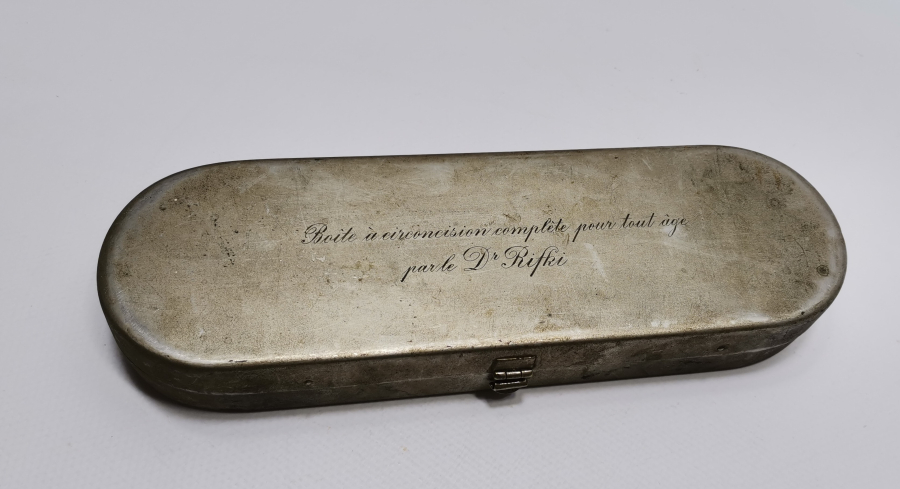 Boite à circoncision complète pour tout âge
par le Dr Rifki